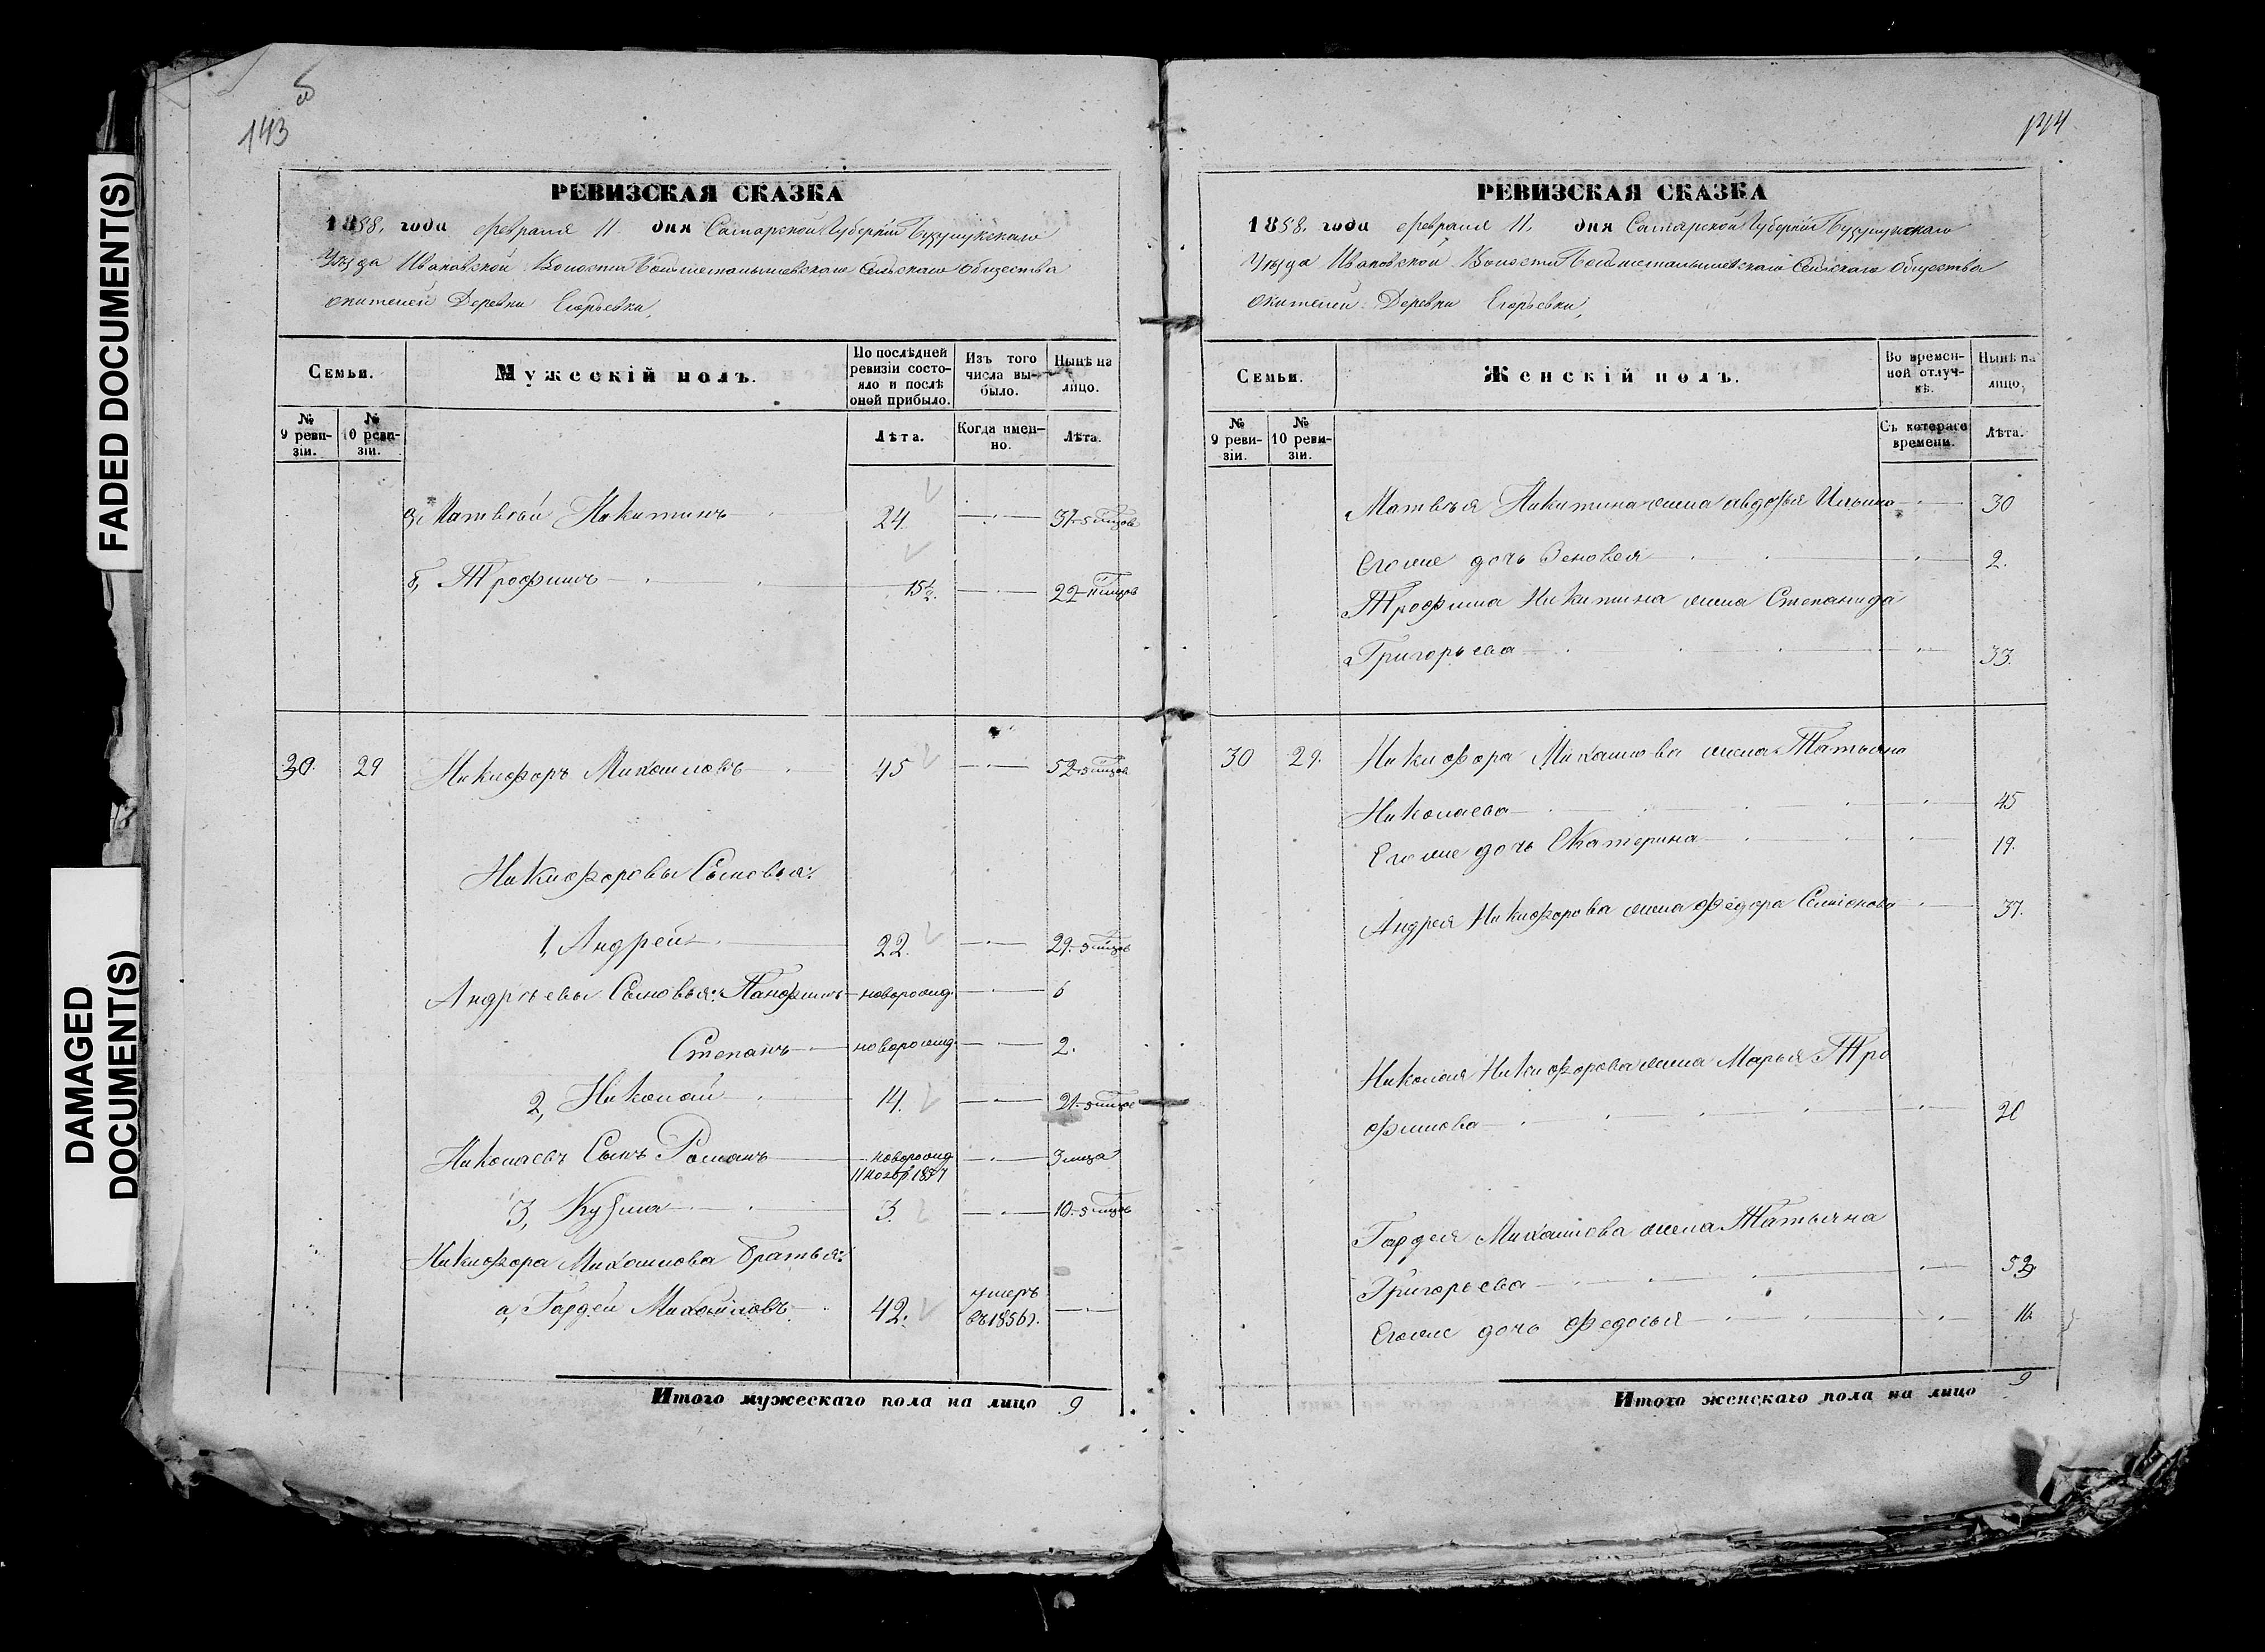 FADED DOCUMENT(S)
DAMAGED
DOCUMENT(S)
143
РЕВИЗСКАЯ СКАЗКА
1858. года февраля 11. дня Самарской Губерніи Бузулукскаго
Уѣзда Ивановской Волости Сельскаго Общества
жителей Деревни Егорьевки,
Семьи.
Мужескій полъ.
По послѣдней ревизіи состояло и послѣ оной прибыло.
Изъ того числа выбыло.
Нынѣ на лицо.
№ 9 ревизіи.
№ 10 ревизіи.
Лѣта.
Когда именно.
Лѣта.
Матвѣй Никитинъ 24. 31-5
б, Трофимъ 15½. 22-11
30. 29 Никифоръ Михайловъ 45 52-5
Никифоровы Сыновья:
1, Андрей 22. 29-5
Андрѣевы Сыновья: новорожд. 6
Степанъ новорожд. 2.
2, Николай 14. 21-5
Николаевъ Сынъ Романъ новорожд 11 нояб 1857 3 мца
3, Кузма 3. 10-5
Никифора Михайлова братья:
а, Гордей Михайловъ 42. умеръ въ 1856 г.
Итого мужескаго пола на лицо 9
144
РЕВИЗСКАЯ СКАЗКА
1858. года февраля 11. дня Самарской Губерніи Бузулукскаго
Уѣзда Ивановской Волости Сельскаго Общества
жителей Деревни Егорьевки,
Семьи.
Женскій полъ.
Во временной отлучкѣ.
Нынѣ на лицо,
№ 9 ревизіи.
№ 10 ревизіи.
Съ котораго времени.
Лѣта.
Матвѣя Никитина жена Авдотья Ильина 30
Егоже дочь Зеновея 2.
Трофима Никитина жена Степанида
Григорьева 33.
30 29. Никифора Михайлова жена Татьяна
Николаева 45
Егоже дочь Екатерина 19.
Андрея Никифорова жена Федора Семіонова 31.
Николая Никифорова жена Марья Тро
фимова 20
Гордея Михайлова жена Татьяна
Григорьева
Егоже дочь Федосья 16.
Итого женскаго пола на лицо 9